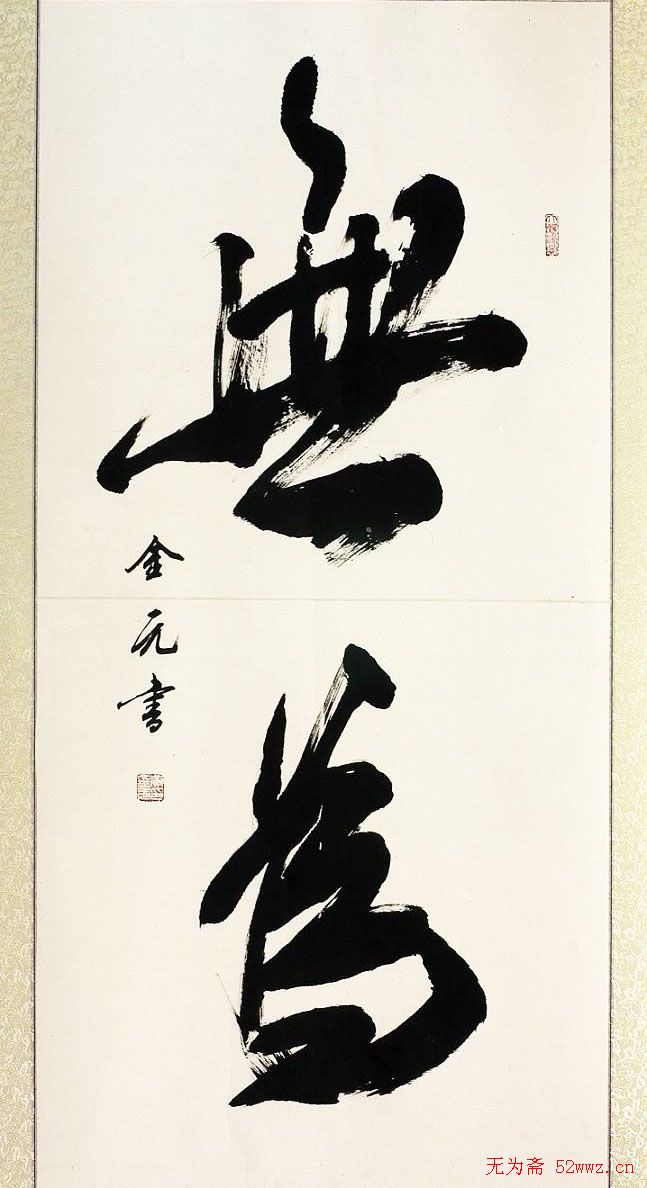 無為
金元书
无为斋 52wwz.cn